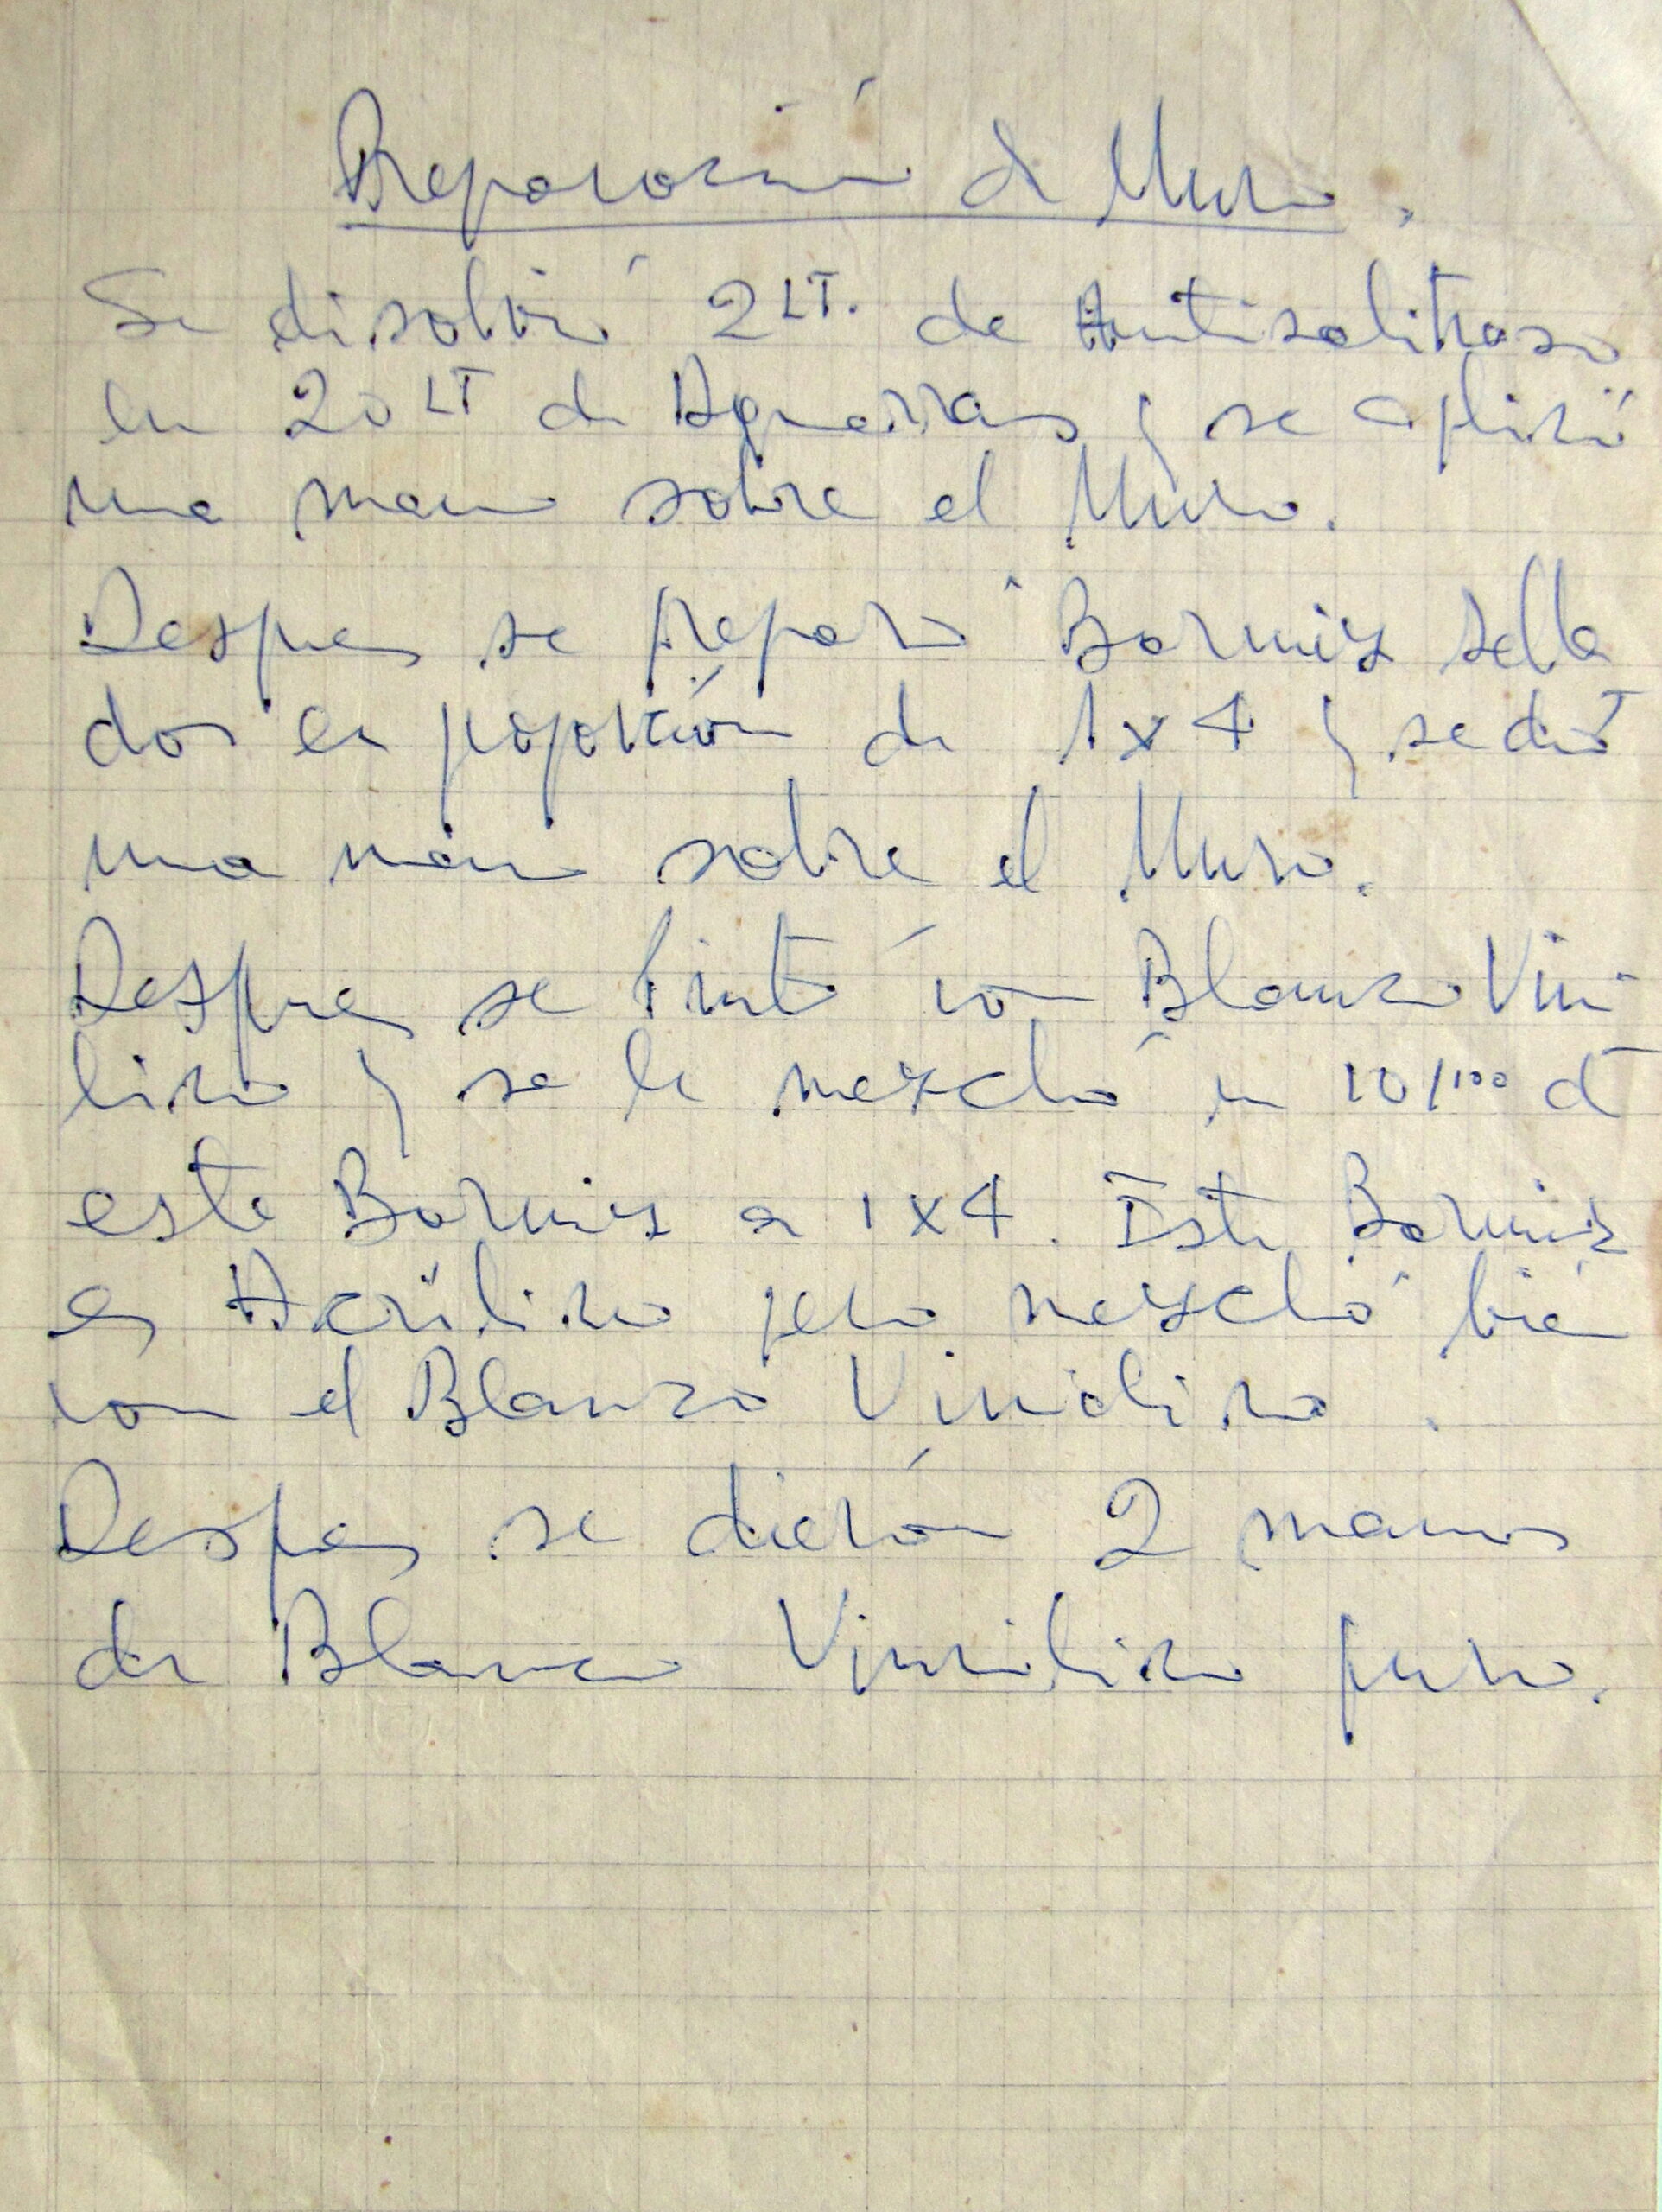 Preparación de Muro.
Se disolvió 2 LT. de Antisalitroso
en 20 LT de Aguarras y se aplicó
una mano sobre el Muro.
Despues se preparó Barniz sella
dor en proporción de 1x4 y se dió
una mano sobre el Muro.
Despues se pintó con Blanco Vini
lico y se le mezcló un 10/100 de
este Barniz a 1x4. Este Barniz
es Acrílico pero mezcló bién
con el Blanco Vinilico.
Despues se dierón 2 manos
de Blanco Vinilico puro.